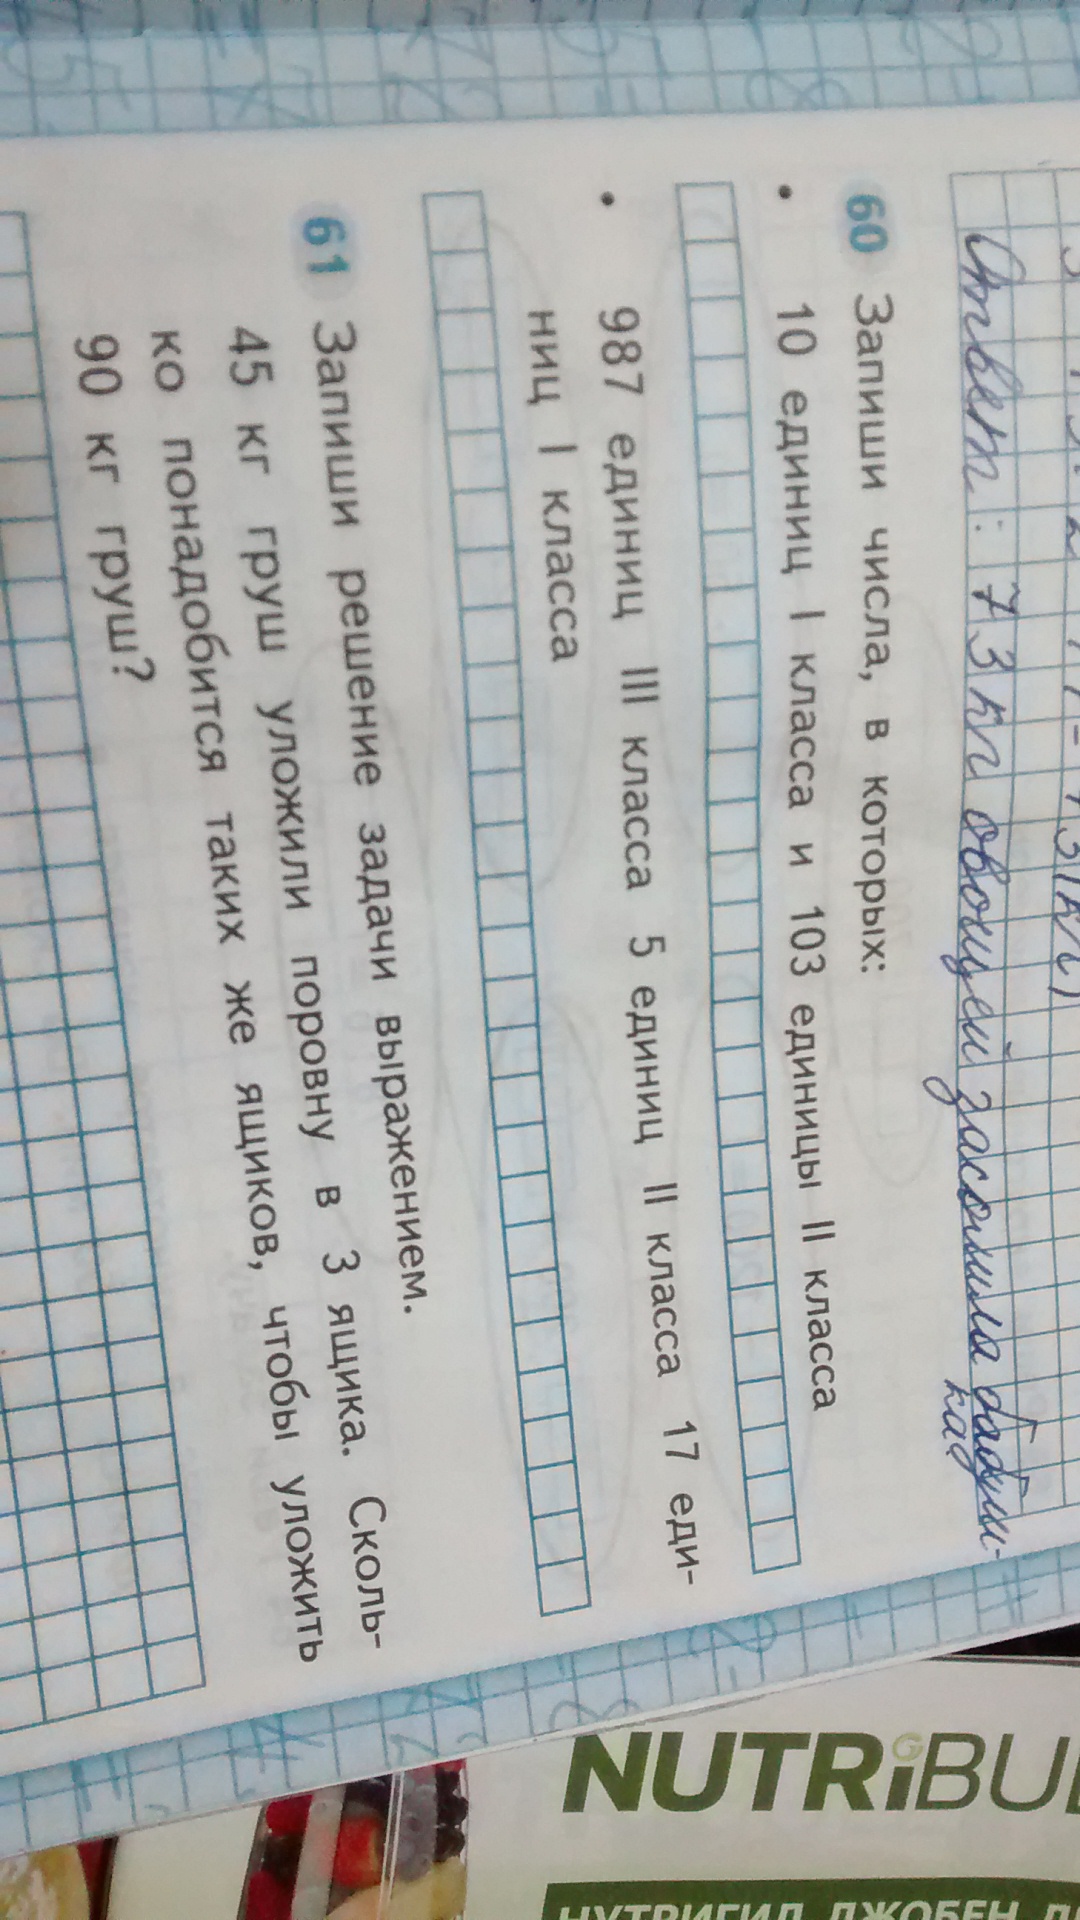 Ответ: 73 кг овощей засолила бабуш-
кад
60 Запиши числа, в которых:
• 10 единиц I класса и 103 единицы II класса
• 987 единиц III класса 5 единиц II класса 17 еди-
ниц I класса
61 Запиши решение задачи выражением.
45 кг груш уложили поровну в 3 ящика. Сколь-
ко понадобится таких же ящиков, чтобы уложить
90 кг груш?
NUTRiBU
НУТРИГИД ДЖОБЕН